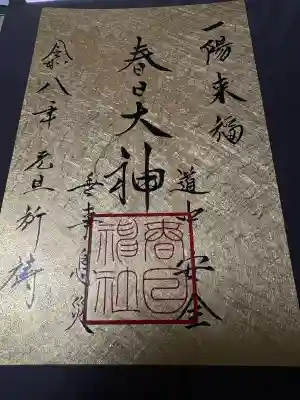 一陽来福
道中安全
春日大神
無事息災
令八年 元旦祈祷
春日
神社